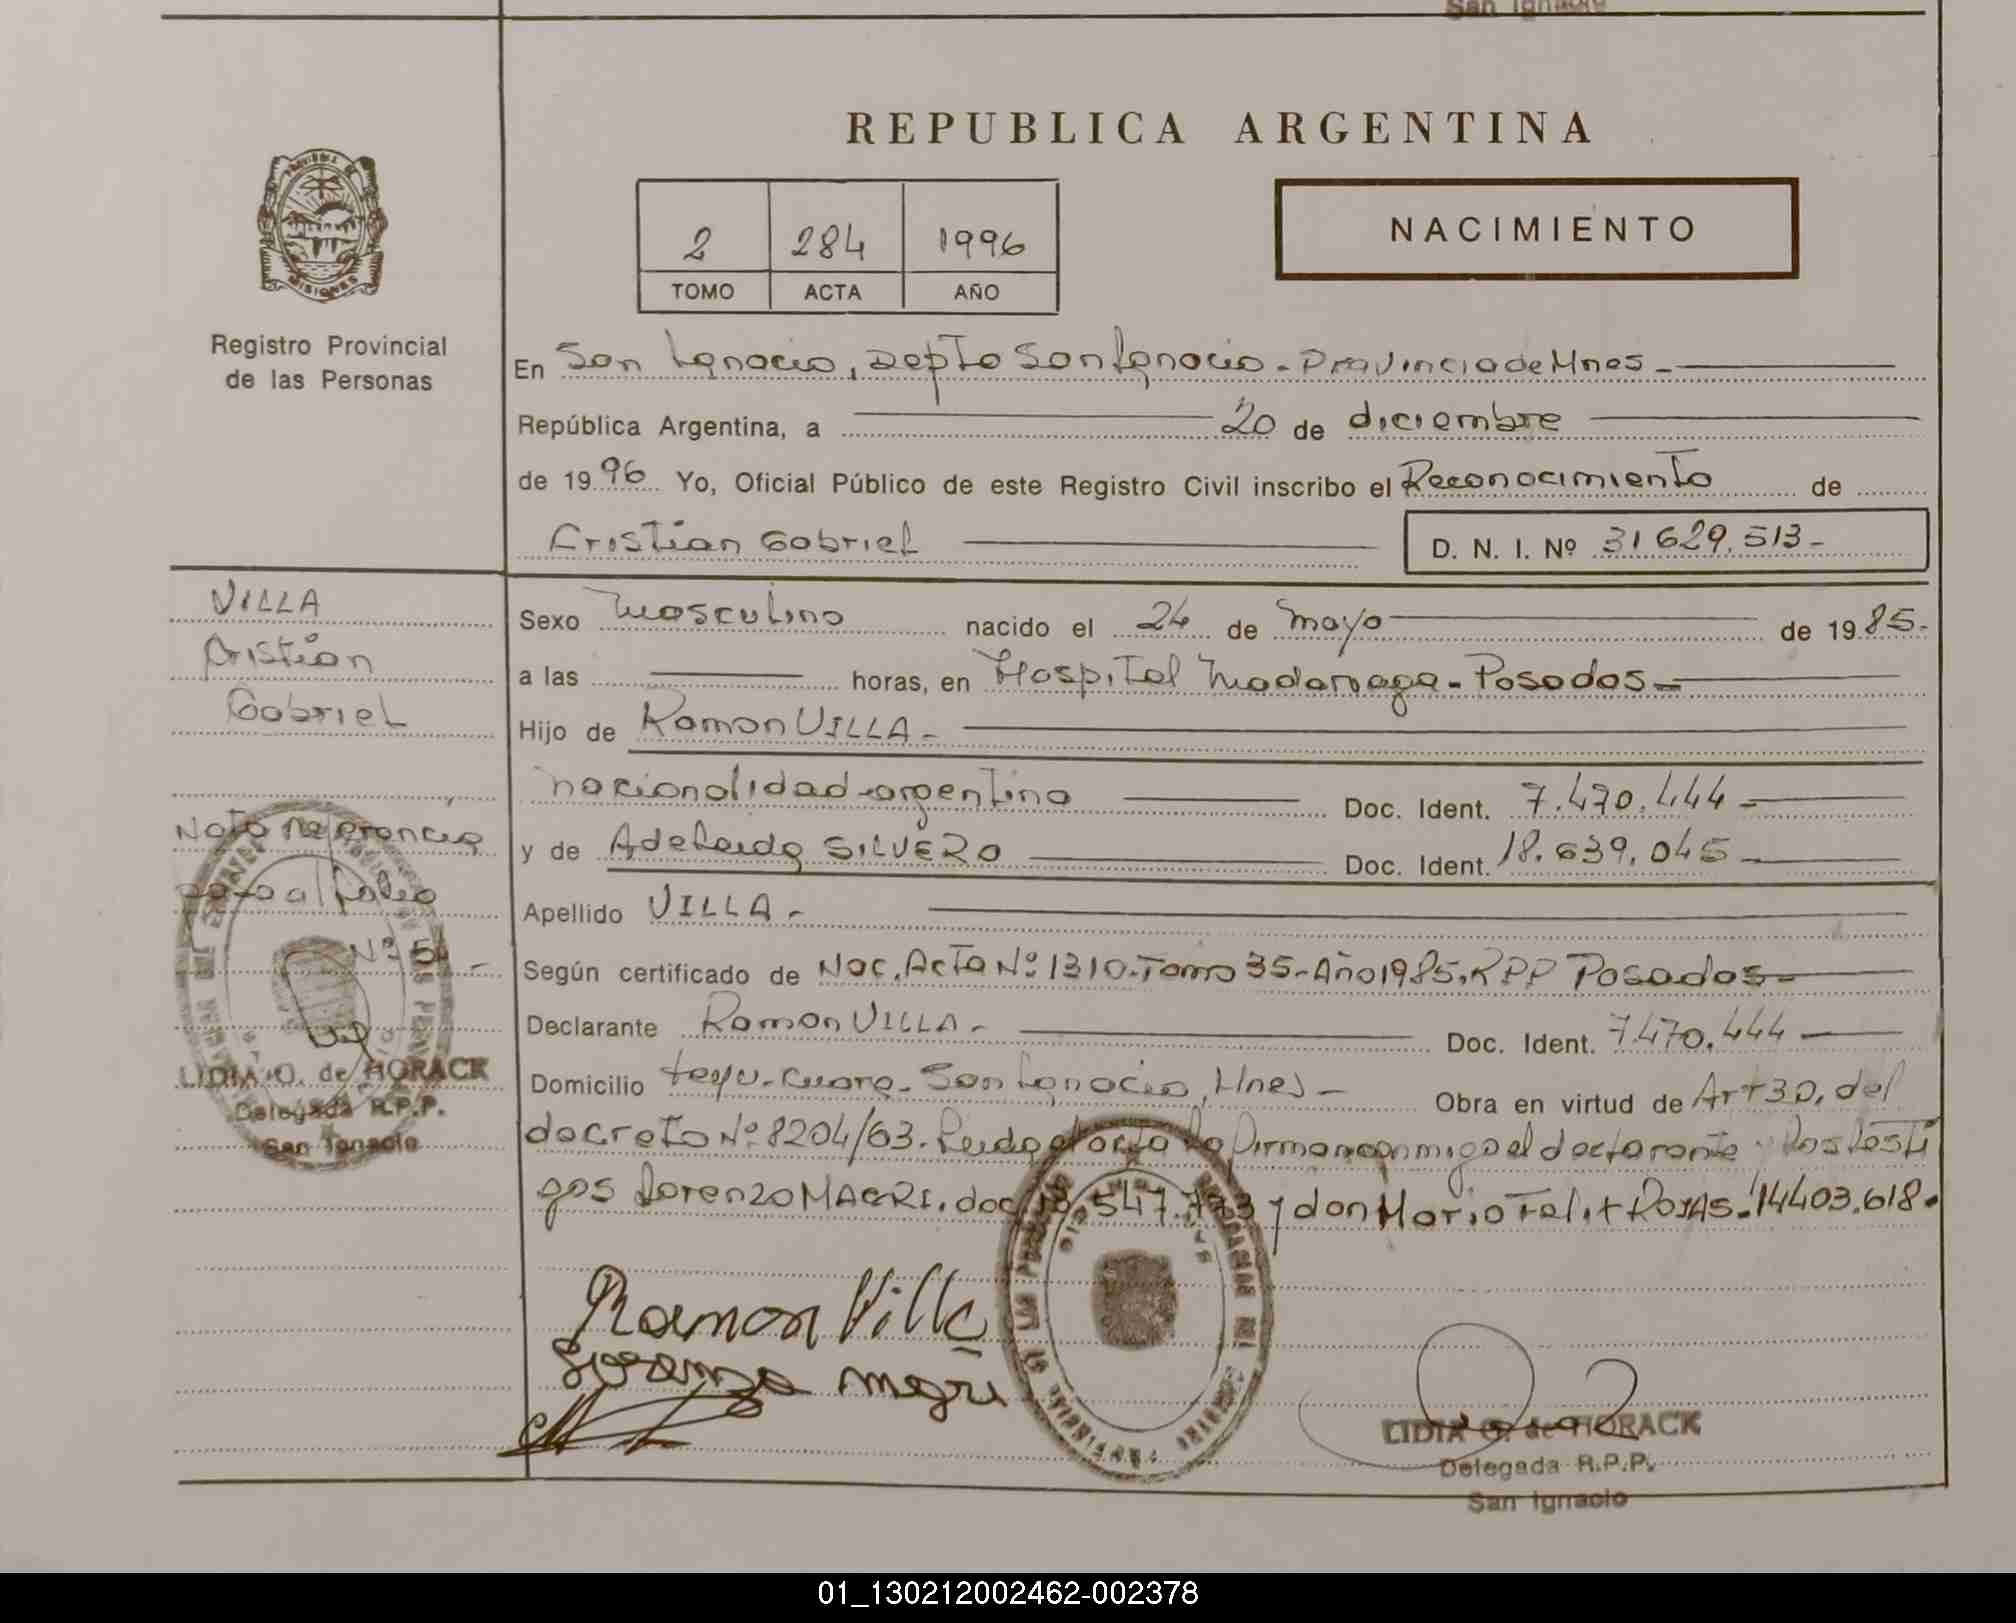 San Ignacio
REPUBLICA ARGENTINA
2 284 1996
TOMO ACTA AÑO
NACIMIENTO
PROVINCIA DE
MISIONES
Registro Provincial
de las Personas
En San Ignacio, Depto San Ignacio - Provincia de Mnes -
República Argentina, a 20 de diciembre
de 1996 Yo, Oficial Público de este Registro Civil inscribo el Reconocimiento de
Cristian Gabriel D. N. I. Nº 31 629.513-
VILLA
Cristian
Gabriel
Nota referencia
Nº
LIDIA O. de HORACK
Delegada R.P.P.
San Ignacio
Sexo Masculino nacido el 24 de mayo de 1985-
a las horas, en Hospital Madariaga - Posadas -
Hijo de Ramon VILLA -
nacionalidad argentina Doc. Ident. 7.470.444-
y de Adelaida SILVERO Doc. Ident. 18.639.045-
Apellido VILLA -
Según certificado de Nac. Acta Nº 1310-Tomo 35-Año 1985. RPP Posadas-
Declarante Ramon VILLA - Doc. Ident. 7.470.444
Domicilio teyu-cuare - San Ignacio, Mnes - Obra en virtud de Art 30, del
decreto Nº 8204/63. Leida el acta la firman conmigo el declarante y los testi
gos Lorenzo MAGRI. doc 547.773 y don Mario Felix ROJAS - 14403.618.
Ramon Villa
LIDIA O. de HORACK
Delegada R.P.P.
San Ignacio
01_130212002462-002378